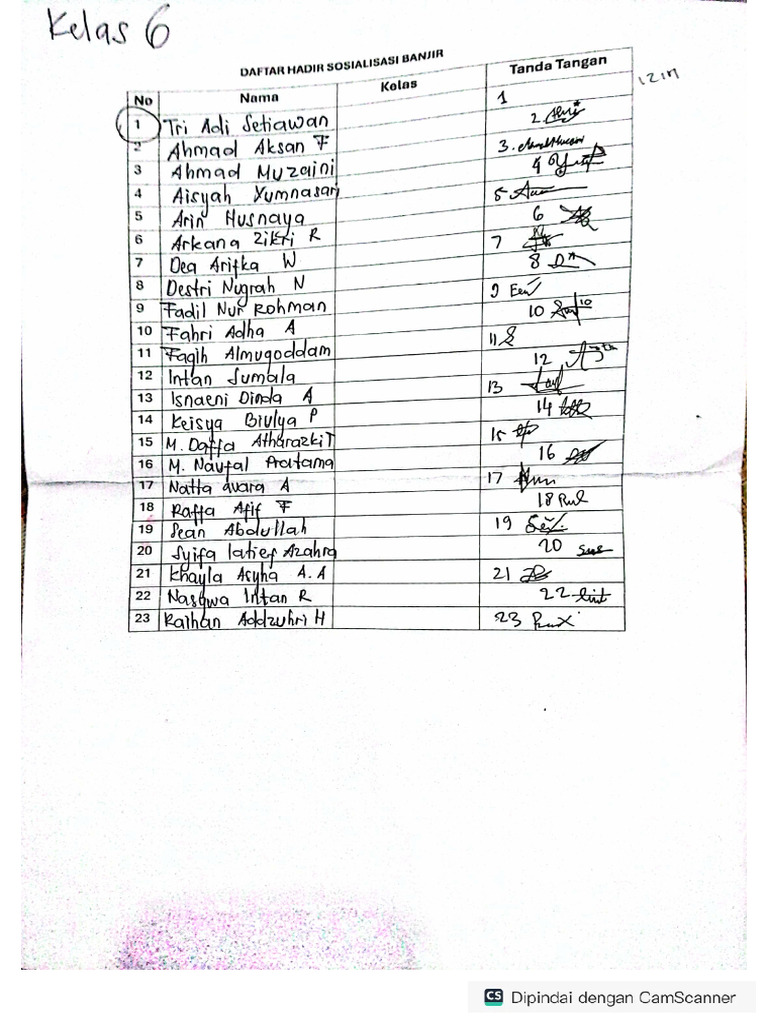 Kelas 6
DAFTAR HADIR SOSIALISASI BANJIR
No Nama Kelas Tanda Tangan
1 Tri Adi Setiawan 1 izin
2 Ahmad Aksan F 2.
3 Ahmad Muzaini 3.
4 Aisyah Yumnasari 4
5 Arin Husnaya 5
6 Arkana Zikri R 6
7 Dea Arifka W 7
8 Destri Nugrah N 8
9 Fadil Nur Rohman 9
10 Fahri Adha A 10
11 Faqih Almuqoddam 11
12 Intan Jumala 12
13 Isnaeni Dinda A 13
14 Keisya Biulya P 14
15 M. Daffa Atharazki T 15
16 M. Naufal Pratama 16
17 Natta Avara A 17
18 Raffa Afif F 18
19 Sean Abdullah 19
20 Syifa latief Azahra 20
21 Khayla Asyha A.A 21
22 Naswa Intan R 22
23 Raihan Addzuhri H 23
CS Dipindai dengan CamScanner